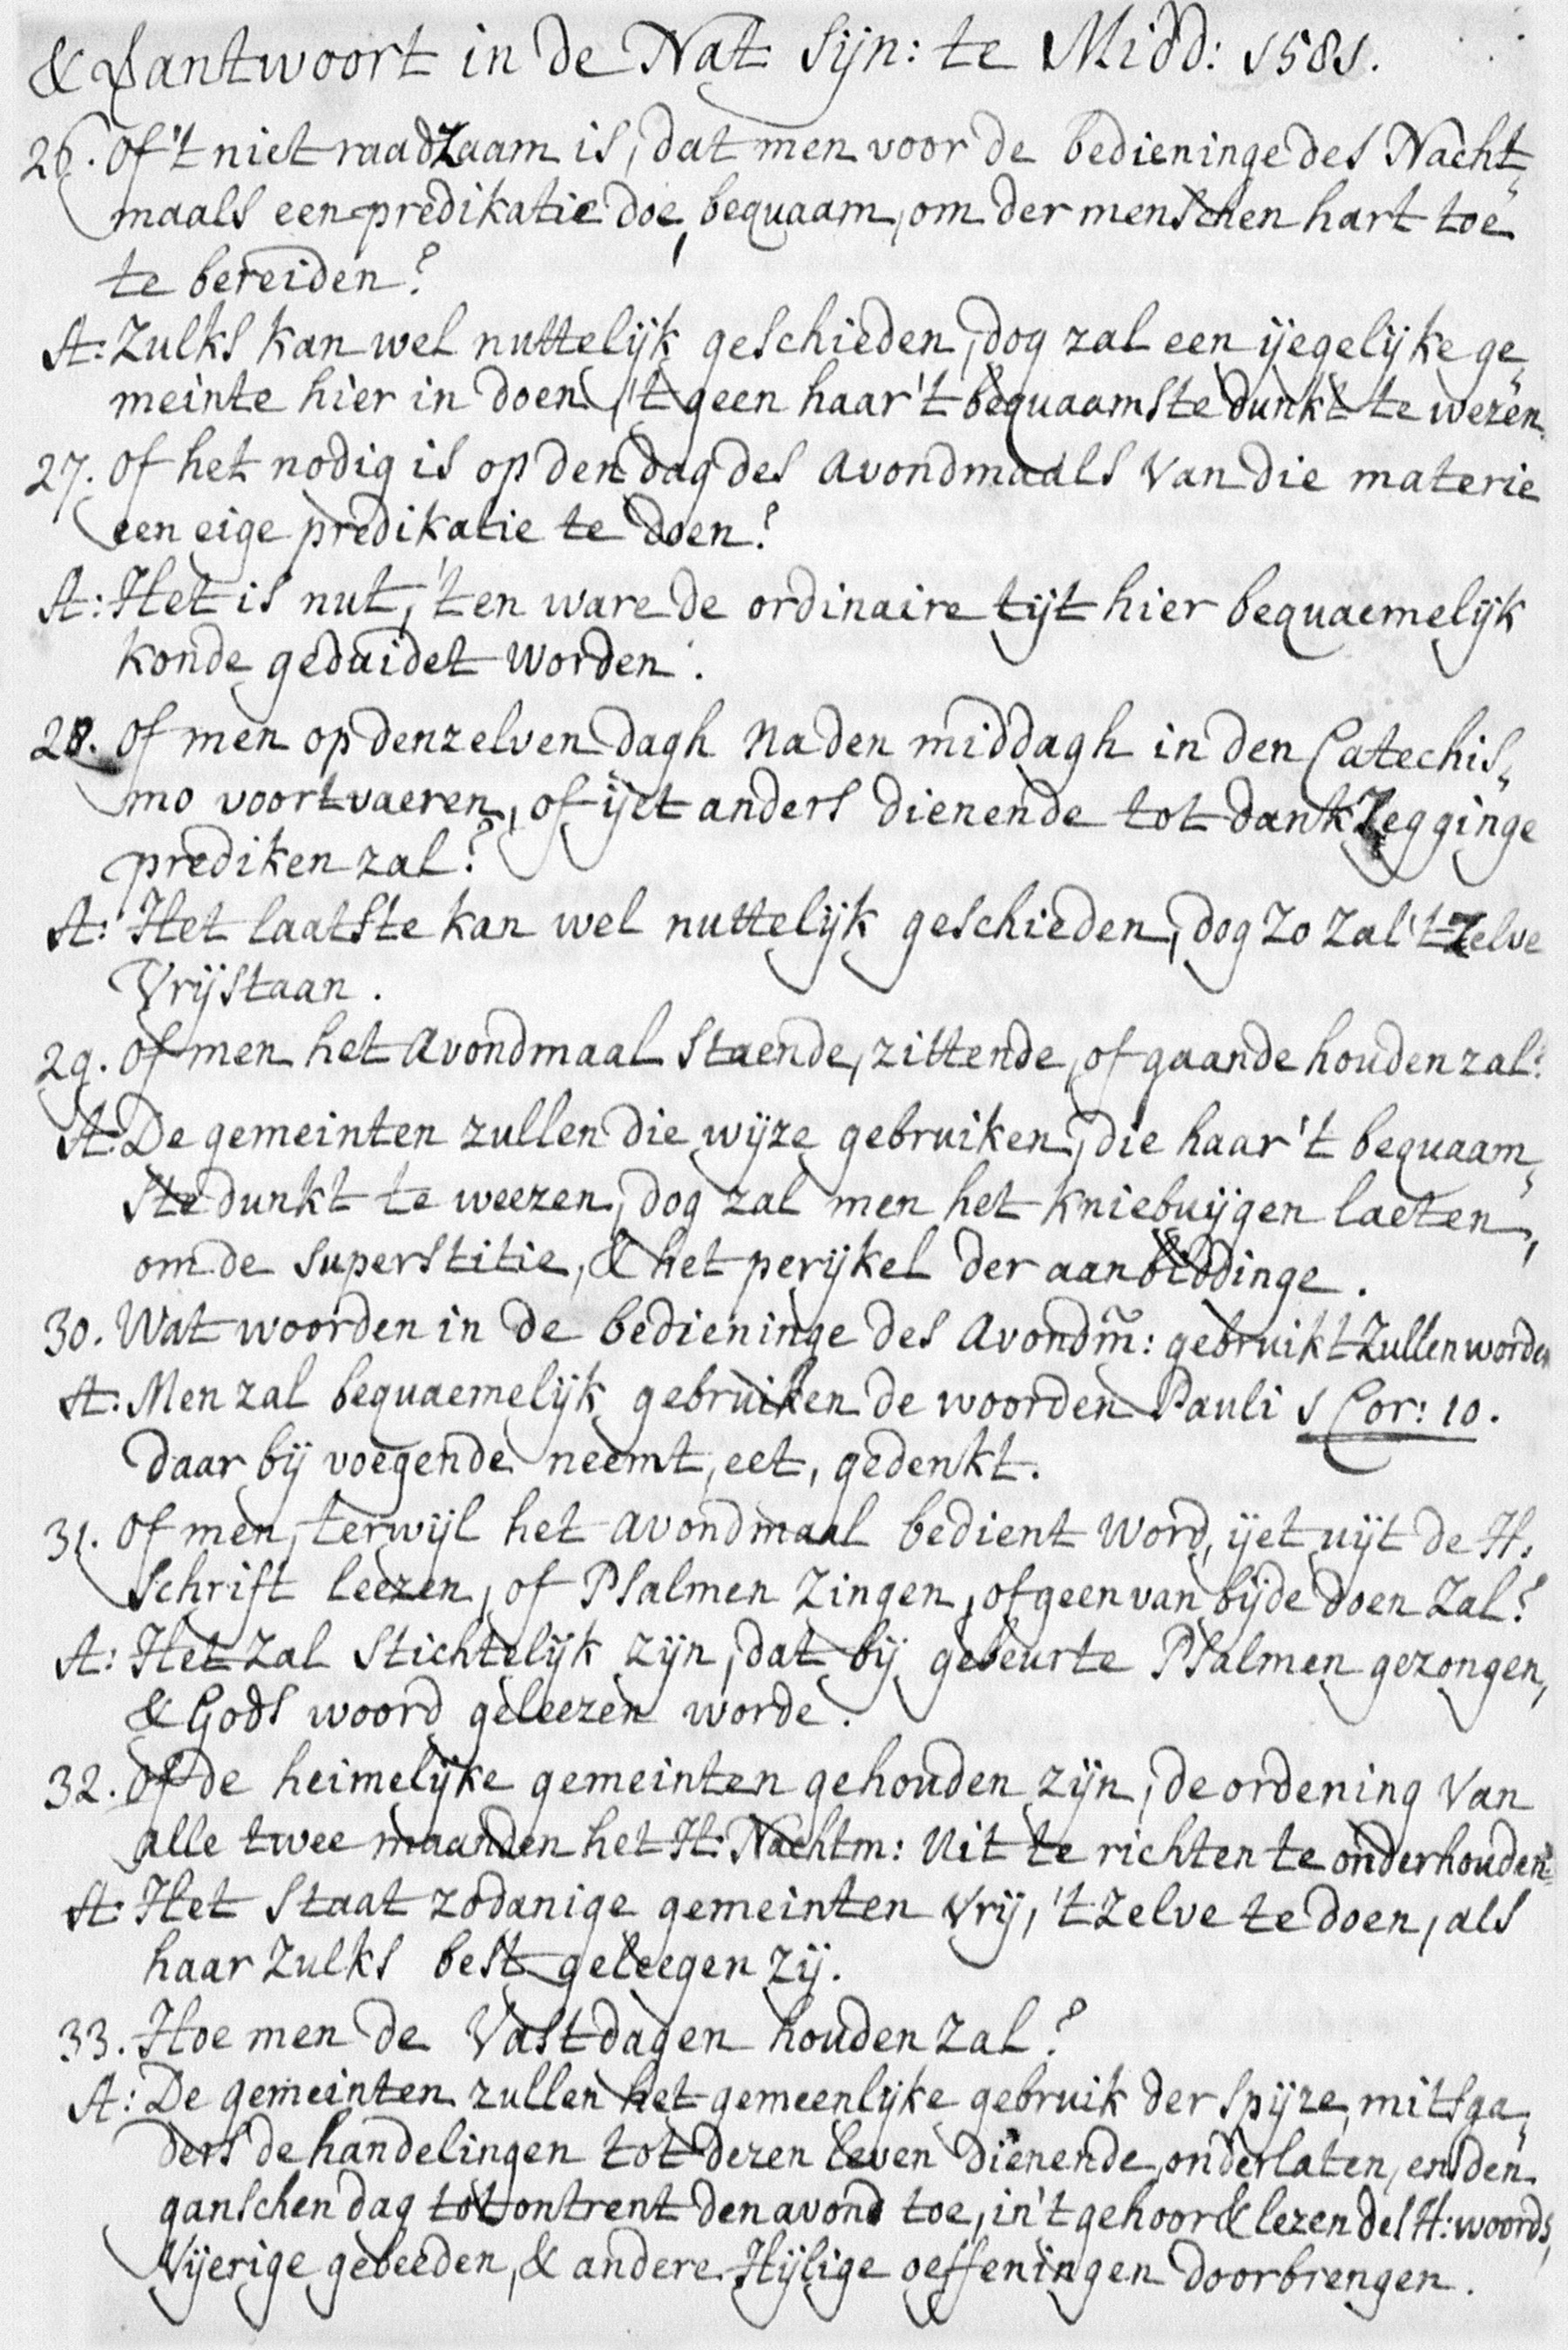 & beantwoort in de Nat: Sijn: te Midd: 1581.
26. Of 't niet raadzaam is, dat men voor de bedieninge des Nacht„
maals een predikatie doe, bequaam, om der menschen hart toe
te bereiden?
A: Zulks kan wel nuttelijk geschieden, dog zal een ijegelijke ge„
meinte hier in doen, 't geen haar 't bequaamste dunkt te wezen.
27. Of het nodig is op den dag des avondmaals van die materie
een eige predikatie te doen?
A: Het is nut, 't en ware de ordinaire tijt hier bequaemelijk
konde geduidet worden.
28. Of men op denzelven dagh na den middagh in den Catechis„
mo voortvaeren, of ijet anders dienende tot dankzegginge
prediken zal?
A: Het laatste kan wel nuttelijk geschieden, dog zo zal 't zelve
vrij staan.
29. Of men het avondmaal staende, zittende, of gaande houden zal?
A: De gemeinten zullen die wijze gebruiken, die haar 't bequaam„
ste dunkt te weezen, dog zal men het kniebuijgen laeten,
om de superstitie, & het perijkel der aanbiddinge.
30. Wat woorden in de bedieninge des avondm̃: gebruikt zullen worden
A: Men zal bequaemelijk gebruiken de woorden Pauli 1 Cor: 10.
daar bij voegende neemt, eet, gedenkt.
31. Of men, terwijl het avondmaal bedient word, ijet uijt de H:
Schrift leezen, of Psalmen zingen, of geen van bijde doen zal?
A: Het zal stichtelijk zijn, dat bij gebeurte Psalmen gezongen,
& Gods woord geleezen worde.
32. Of de heimelijke gemeinten gehouden zijn, de ordening van
alle twee maanden het H: Nachtm: uit te richten te onderhouden?
A: Het staat zodanige gemeinten vrij, 't zelve te doen, als
haar zulks best geleegen zij.
33. Hoe men de vastdagen houden zal?
A: De gemeinten zullen het gemeenlijke gebruik der spijze, mitsga„
ders de handelingen tot dezen leven dienende onderlaten, en den
ganschen dag tot ontrent den avond toe, in 't gehoor & lezen des H: woords,
vijerige gebeeden, & andere Hijlige oeffeningen doorbrengen.